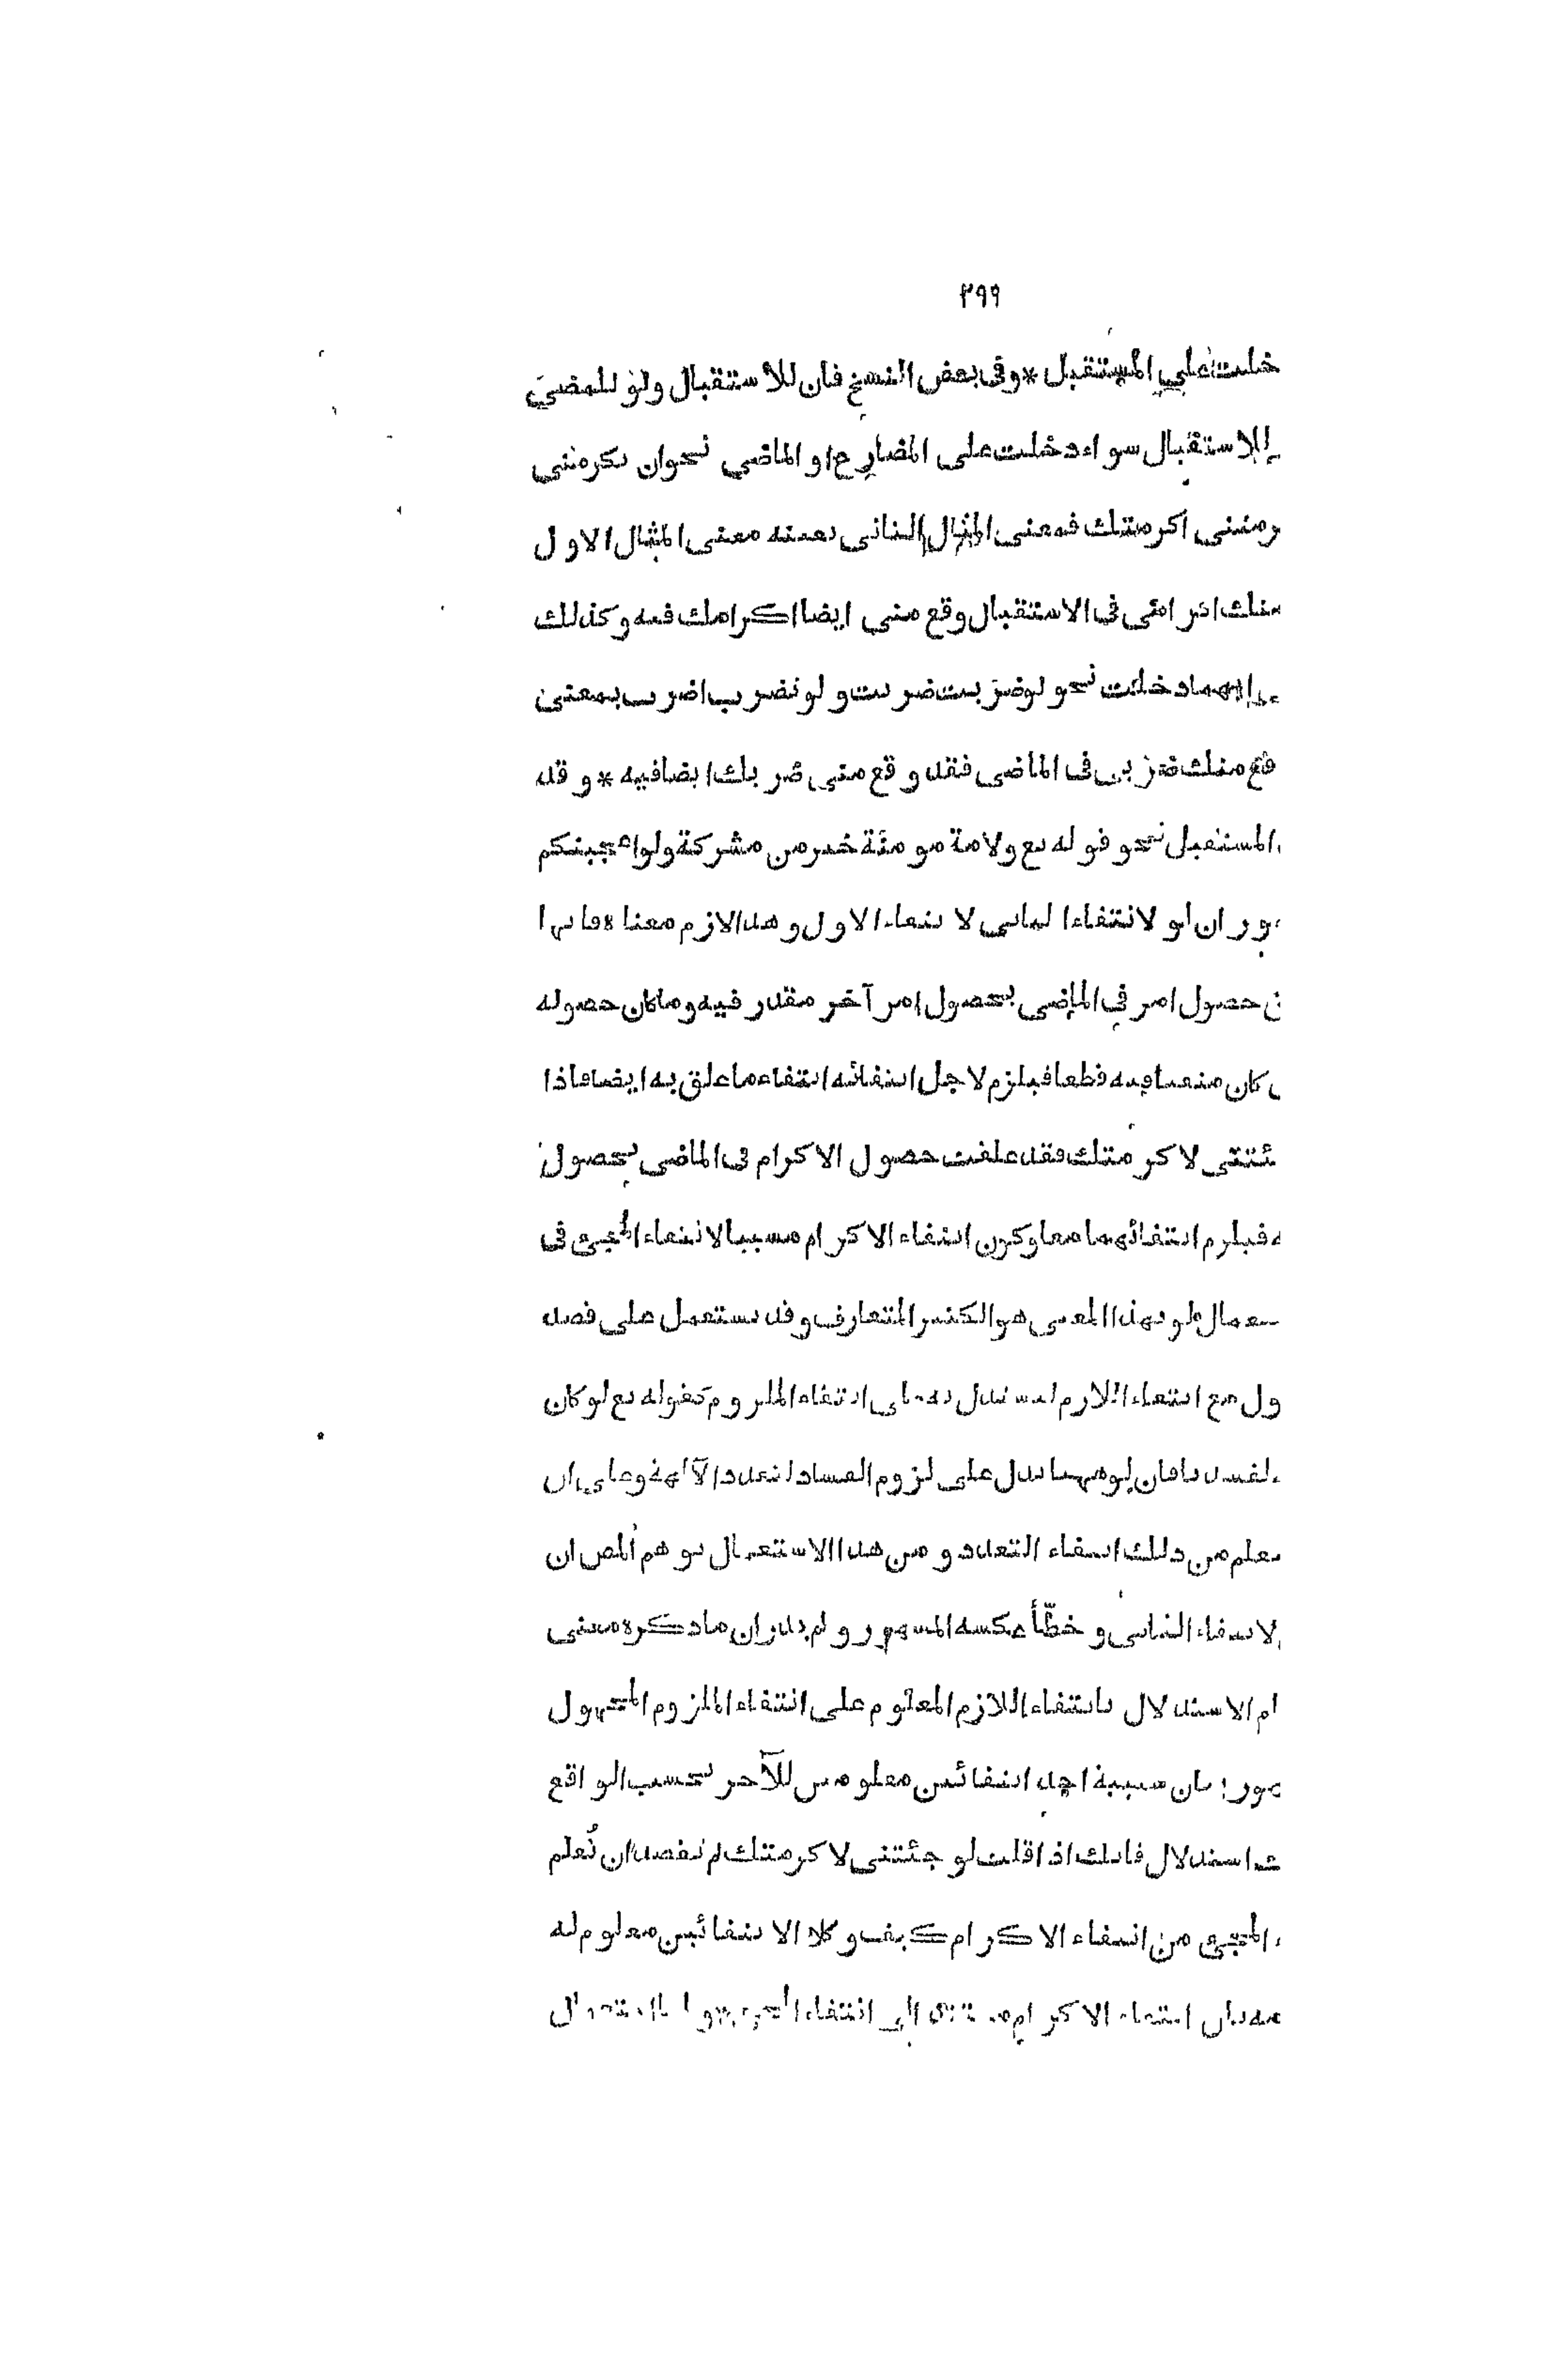 ٣٩٩
خلت على المستقبل * وفى بعض النسخ فان للاستقبال ولو للمضى
للاستقبال سواء دخلت على المضارع او الماضى نحو ان تكرمنى
اكرمتك فمعنى المثال الثانى بعينه معنى المثال الاول
منك اكرامى فى الاستقبال وقع منى ايضا اكرامك فيه وكذلك
ايهما دخلت نحو لو ضربت ضربت ولو تضرب اضرب بمعنى
قع منك ضربى فى الماضى فقد وقع منى ضربك ايضا فيه * و قد
المستقبل نحو قوله تع ولامة مومنة خير من مشركة ولو اعجبتكم
ان لو لانتفاء الثانى لانتفاء الاول وهذا لازم معناه فانها
حصول امر فى الماضى بحصول امر آخر مقدر فيه وما كان حصوله
كان منتفيا فيه قطعا فيلزم لاجل انتفائه انتفاء ما علق به ايضا فاذا
ئتنى لاكرمتك فقد علقت حصول الاكرام فى الماضى بحصول
فيلزم انتفائهما معا وكون انتفاء الاكرام مسببا لانتفاء المجىء فى
لو بهذا المعنى هو الكثير المتعارف وقد يستعمل على قصد
مع انتفاء اللازم ليستدل به على انتفاء الملزوم كقوله تع لو كان
لفسدتا فان لو ههنا تدل على لزوم الفساد لتعدد الآلهة وعلى ان
يعلم من ذلك انتفاء التعدد و من هذا الاستعمال توهم المص ان
لانتفاء الثانى و خطّأ عكسه المشهور ولم يدر ان ما ذكره معنى
الاستدلال بانتفاء اللازم المعلوم على انتفاء الملزوم المجهول
بيان سببية احد انتفائين معلومين للآخر بحسب الواقع
استدلال فانك اذا قلت لو جئتنى لاكرمتك لم تقصد ان تُعلم
المجىء من انتفاء الاكرام كيف وكلا الانتفائين معلوم له
انتفاء الاكرام انتفاء